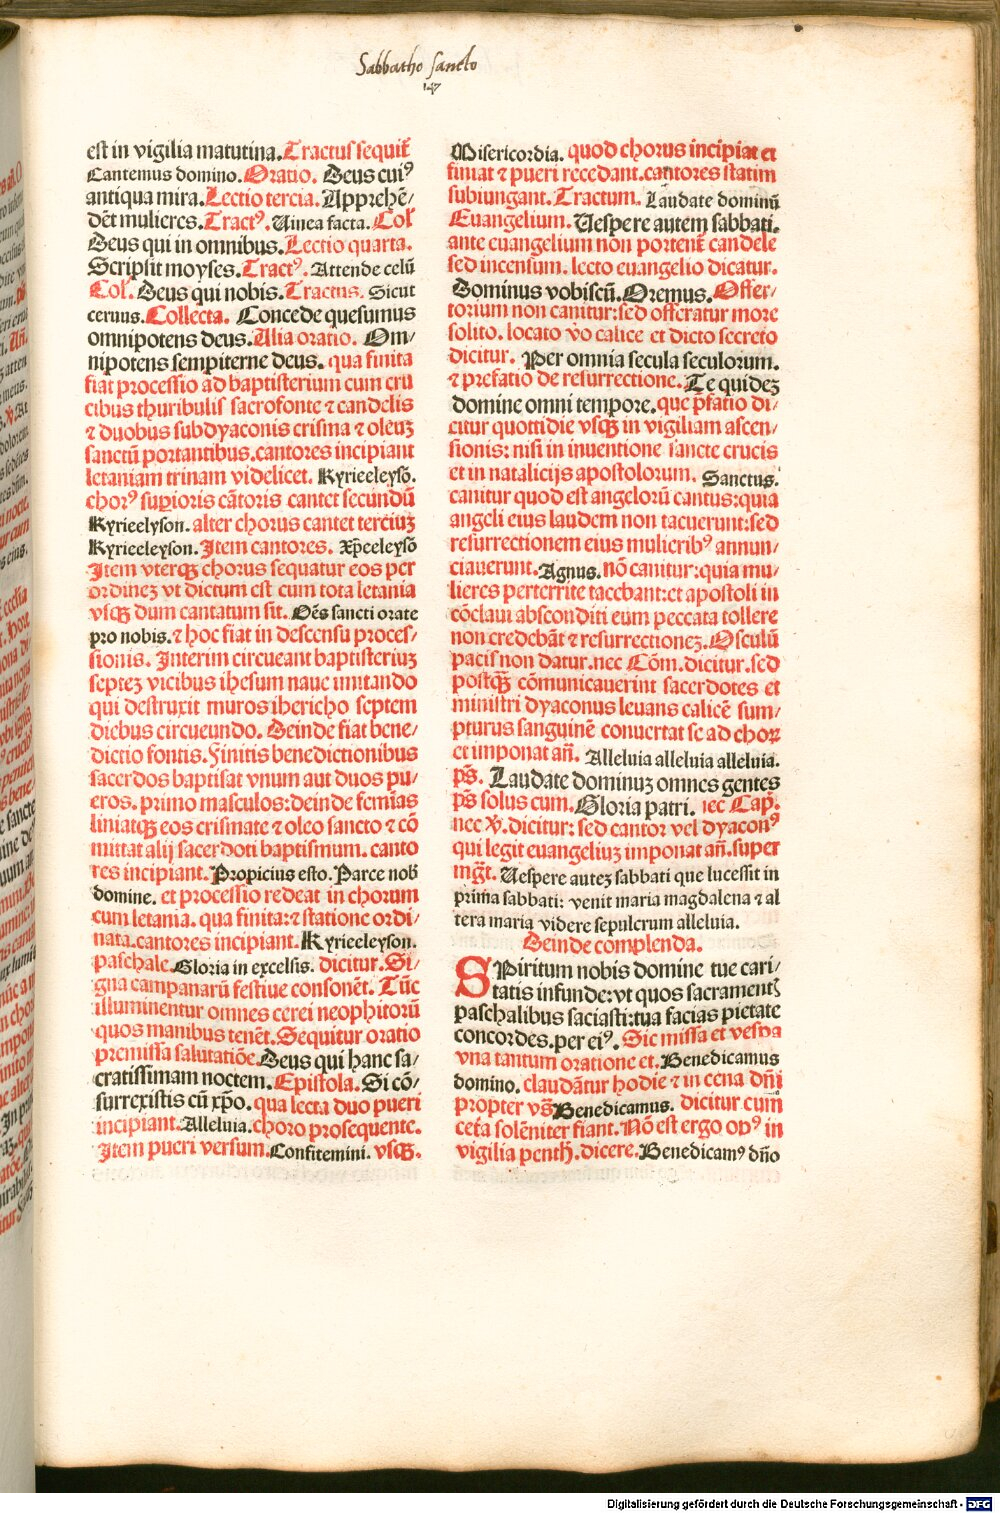 Sabbatho sancto
147
est in vigilia matutina. Tractus sequit᷑
Cantemus domino. Oratio. Deus cuiꝰ
antiqua mira. Lectio tercia. Apprehē/
dēt mulieres. Tractꝰ. Uinea facta. Col̄
Deus qui in omnibus. Lectio quarta.
Scripsit moyses. Tractꝰ. Attende celū
Col̄. Deus qui nobis. Tractus. Sicut
ceruus. Collecta. Concede quesumus
omnipotens deus. Alia oratio. Om/
nipotens sempiterne deus. qua finita
fiat processio ad baptisterium cum cru
cibus thuribulis sacro fonte ⁊ candelis
⁊ duobus subdyaconis crisma ⁊ oleuꝫ
sanctū portantibus. cantores incipiant
letaniam trinam videlicet. Kyrieeleysō.
chorꝰ supioris cātoris cantet secundū
Kyrieelyson. alter chorus cantet terciuꝫ
Kyrieeleyson. Item cantores. xp̄eeleysō
Item vterqꝫ chorus sequatur eos per
ordineꝫ vt dictum est cum tota letania
vsqꝫ dum cantatum sit. Oēs sancti orate
pro nobis. ⁊ hoc fiat in descensu proces/
sionis. Interim circueant baptisteriuꝫ
septeꝫ vicibus ihesum naue imitando
qui destruxit muros iherico septem
diebus circueundo. Deinde fiat bene/
dictio fontis. Finitis benedictionibus
sacerdos baptisat vnum aut duos pu/
eros. primo masculos: deinde feminas
liniatqꝫ eos crismate ⁊ oleo sancto ⁊ cō
mittat alij sacerdoti baptismum. canto
res incipiant. Propicius esto. Parce nob̄
domine. et processio redeat in chorum
cum letania. qua finita: ⁊ statione ordi/
nata. cantores incipiant. Kyrieeleyson.
paschale. Gloria in excelsis. dicitur. Si/
gna campanarū festiue consonēt. Tūc
illuminentur omnes cerei neophitorū
quos manibus tenēt. Sequitur oratio
premissa salutatiōe. Deus qui hanc sa/
cratissimam noctem. Epistola. Si cō/
surrexistis cū xp̄o. qua lecta duo pueri
incipiant. Alleluia. choro prosequente.
Item pueri versum. Confitemini. vsqꝫ.
Misericordia. quod chorus incipiat et
finiat ⁊ pueri recedant. cantores statim
subiungant. Tractum. Laudate dominū
Euangelium. Uespere autem sabbati.
ante euangelium non portent᷑ candele
sed incensum. lecto euangelio dicatur.
Dominus vobiscū. Oremus. Offer/
torium non canitur: sed offeratur more
solito. locato v̄o calice et dicto secreto
dicitur. Per omnia secula seculorum.
⁊ prefatio de resurrectione. Te quideꝫ
domine omni tempore. que p̄fatio di/
citur quottidie vsqꝫ in vigiliam ascen/
sionis: nisi in inuentione sancte crucis
et in natalicijs apostolorum. Sanctus.
canitur quod est angelorū cantus: quia
angeli eius laudem non tacuerunt: sed
resurrectionem eius mulieribꝰ annun/
ciauerunt. Agnus. nō canitur: quia mu/
lieres perterrite tacebant: et apostoli in
cōclaui absconditi eum peccata tollere
non credebāt ⁊ resurrectioneꝫ. Osculū
pacis non datur. nec Cōm. dicitur. sed
postqꝫ cōmunicauerint sacerdotes et
ministri dyaconus leuans calicē sum/
pturus sanguinē conuertat se ad choꝝ
et imponat an̄. Alleluia alleluia alleluia.
ps̄. Laudate dominuꝫ omnes gentes
ps̄ solus cum. Gloria patri. nec Cap̄.
nec ℣. dicitur: sed cantor vel dyaconꝰ
qui legit euangeliuꝫ imponat an̄. super
mg̅t. Uespere auteꝫ sabbati que lucessit in
prima sabbati: venit maria magdalena ⁊ al
tera maria videre sepulcrum alleluia.
Deinde complenda.
SPiritum nobis domine tue cari/
tatis infunde: vt quos sacramentꝭ
paschalibus saciasti: tua facias pietate
concordes. per eiꝰ. Sic missa et vespa
vna tantum oratione et. Benedicamus
domino. claudātur hodie ⁊ in cena dn̄i
propter vs̄ Benedicamus. dicitur cum
cetā solēniter fiant. Nō est ergo opꝰ in
vigilia penth. dicere. Benedicamꝰ dn̄o
Digitalisierung gefördert durch die Deutsche Forschungsgemeinschaft - DFG